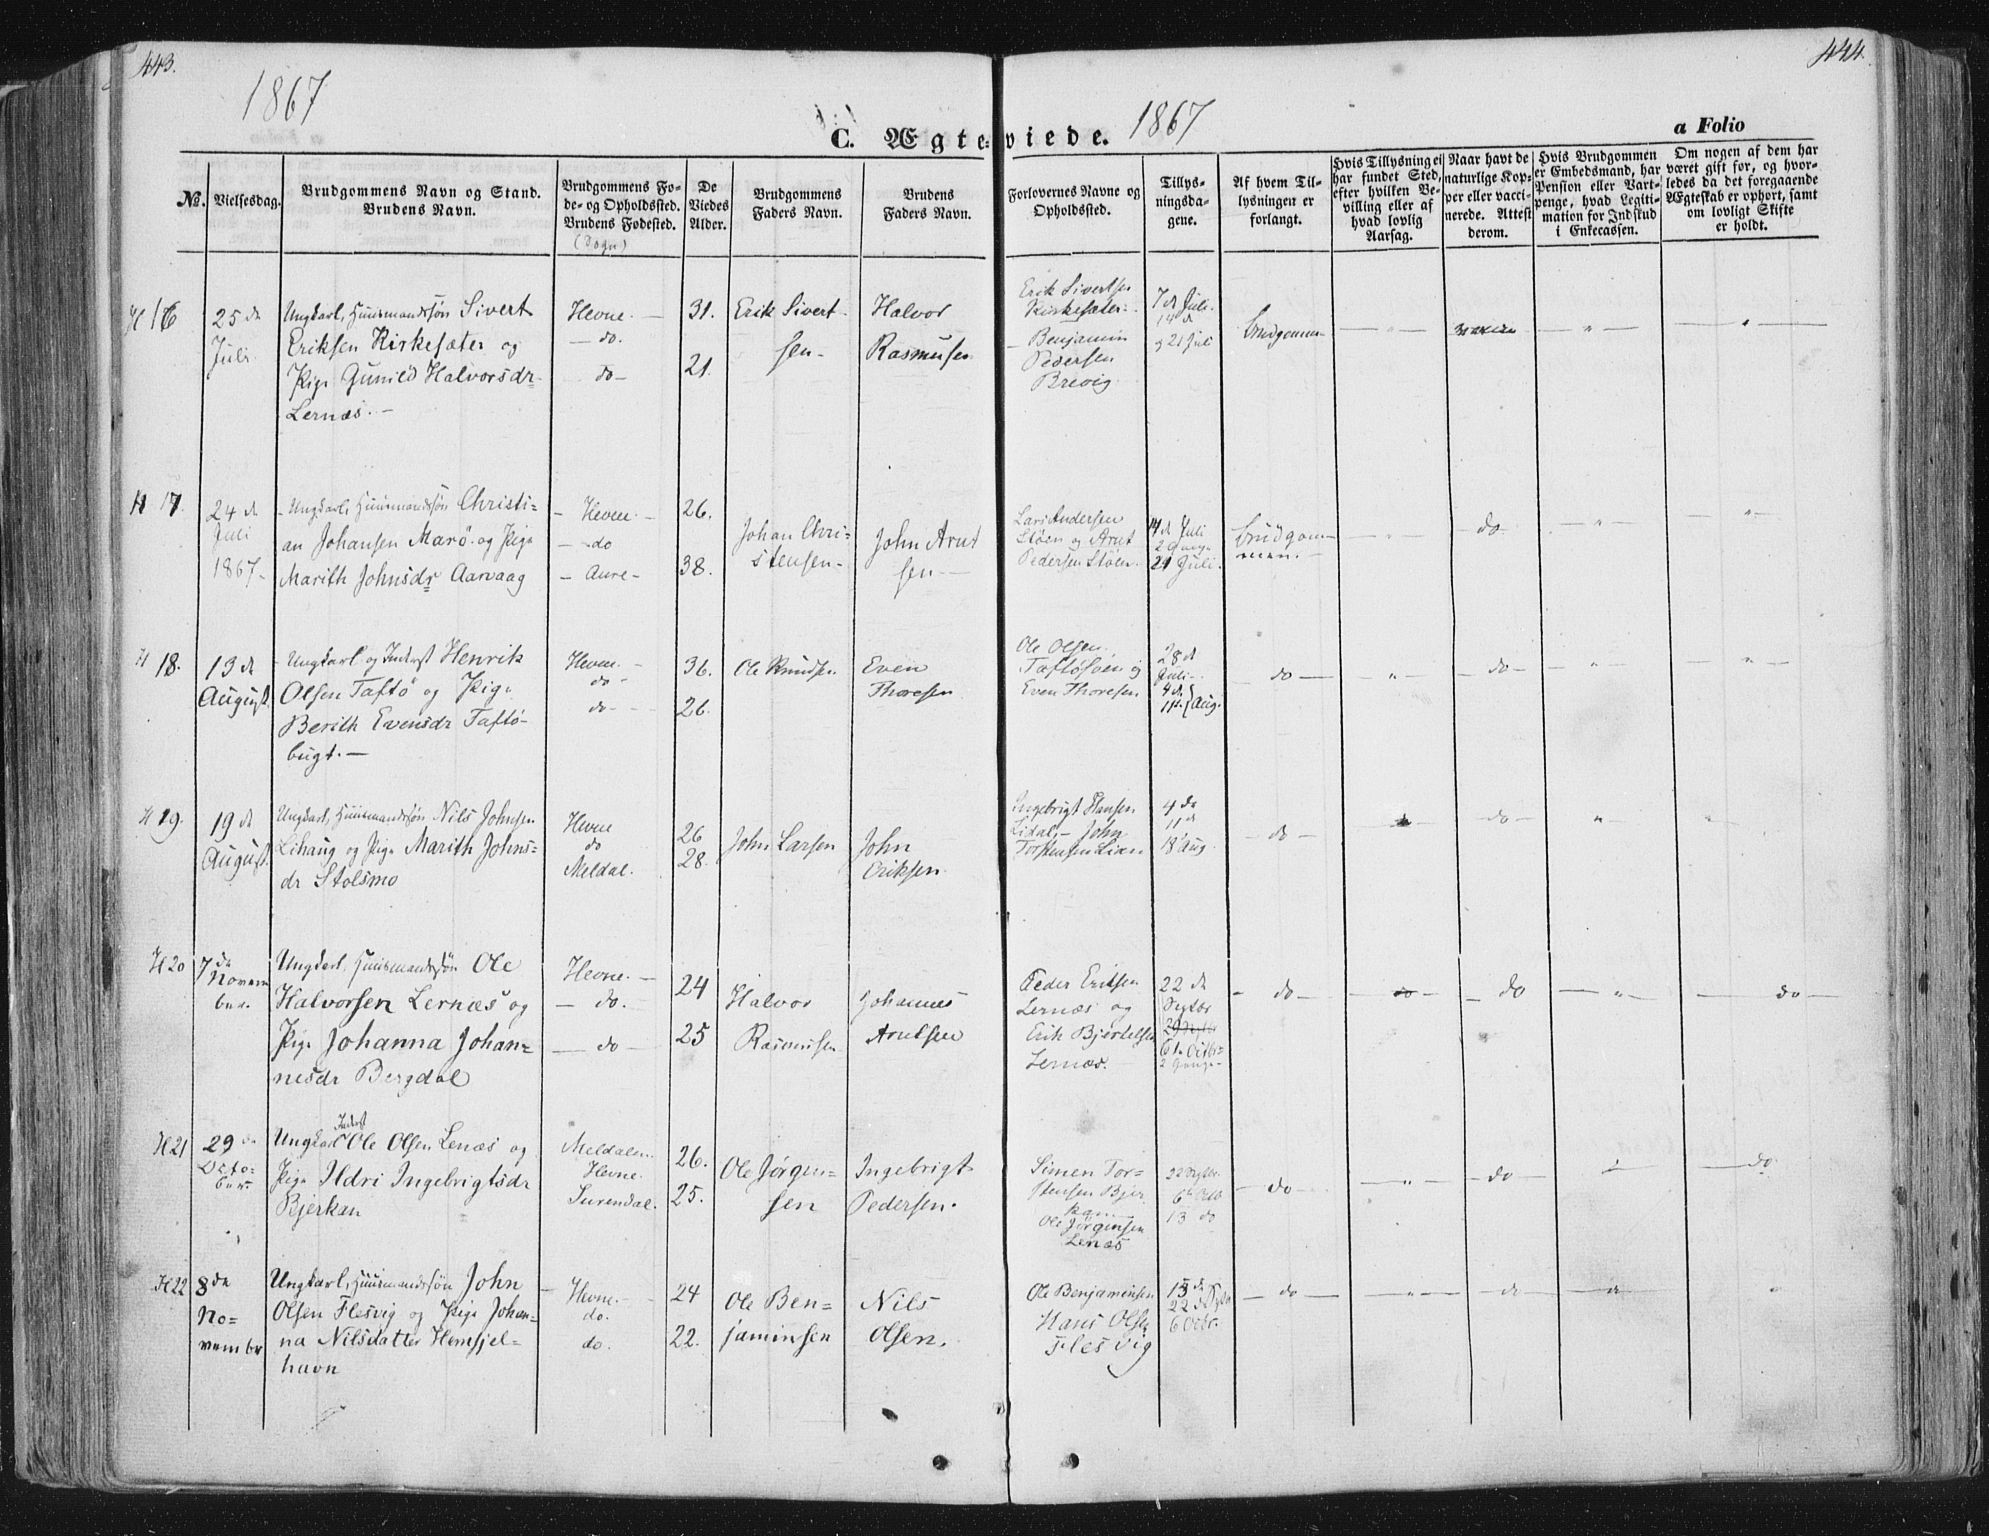 443.
1867
C. Ægte-
viede.
1867
444.
a Folio
No.
Vielsesdag.
Brudgommens Navn og Stand.
Brudens Navn.
Brudgommens Fo-
de- og Opholdssted.
Brudens Fødested.
(Sogn)
De
Viedes
Alder.
Brudgommens
Faders Navn.
Brudens
Faders Navn.
Forlovernes Navne og
Opholdssted.
Tillys-
ningsda-
gene.
Af hvem Til-
lysningen er
forlangt.
Hvis Tillysning ei
har fundet Sted,
efter hvilken Be-
villing eller af
hvad lovlig
Aarsag.
Naar havt de
naturlige Kop-
per eller vacci-
nerede. Attest
derom.
Hvis Brudgommen
er Embedsmand, har
Pension eller Vart-
penge, hvad Legiti-
mation for Indskud
i Enkecassen.
Om nogen af dem har
været gift før, og hvor-
ledes da det foregaaende
Ægteskab er ophørt, samt
om lovligt Skifte
er holdt.
H 16
25 de
Juli
Ungkarl, Huusmandssøn Sivert
Eriksen Kirkesæter og
Pige Gunild Halvorsdr
Lernæs. -
Hevne. -
- do.
- do -
31.
21.
Erik Sivert-
sen-
Halvor
Rasmusen
Erik Sivertsen
Kirkesæter -
Benjamin
Pedersen
Brevig.
7 de Juli.
14 de
og 21 Juli
brudgomm
- " -
- " -
"
H 17.
24 de
Juli
1867-
- Ungkarl, Huusmandssøn Christi-
an Johansen Marø. og Pige
Marith Johnsdr Aarvaag
- Hevne. -
- do
- Aure -
26.
38.
Johan Chri-
stensen-
John Arnt
sen -
Lars Andersen
Støen og Arnt
Pedersen Støen.
14 de Juli
21 Juli.
brudgom-
men. -
- " -
do
- " -
- " -
H 18.
13 de
August.
- Ungkarl og Inderst Henrik
Olsen Taftø og Pige
Berith Evensdr Taftø-
bugt. -
Hevne. -
do -
do -
36.
26.
Ole Knudsen
Even
Thoresen
Ole Olsen
Taftøsven og
Even Thoresen
28 de
Juli -
4 de
11 } Aug.
- do -
- " -
- do -
- " -
- " -
H 19.
19 de
August.
Ungkarl, Huusmandssøn Nils Johnsen
Lihaug og Pige Marith Johns-
dr Stolsmo
Hevne
do
Meldal.
26
28.
John Larsen
John
Eriksen
Ingebrigt Hansen
Lidal, - John
Torstensen Lian
4 de
11 de
18 Aug.
- do -
- do -
- " -
H 20
7 de
Novem
ber.
Ungkarl, Huusmandssøn Ole
Halvorsen Lernæs og
Pige Johanna Johan-
nesdr Bergdal
Hevne. -
- do.
- do -
24
25
Halvor
Rasmusen
Johannes
Arntsen
Peder Eriksen
Lernæs og
Erik Bjertelsen
Lernæs.
22 de
Septbr
- do -
- do -
- do
- " -
- do -
H 21
29 de
Octo-
ber
Inderst
Ungkarl Ole Olsen Lenæs og
Pige Ildri Ingebrigtsdr
Bjerkan
Meldalen
Hevne.
Surendal.
26.
25.
Ole Jørgen-
sen
Ingebrigt
Pedersen.
Simen Tor-
stensen Bjer
kan -
Ole Jørgensen
Lenæs
22 Septbr.
6 Octb
13 do
- do -
- " -
- do -
- do
H 22
8 de
No-
vembr
Ungkarl, Huusmandssøn John
Olsen Flesvig og Pige Johan-
na Nilsdatter Hemsjel-
havn
- Hevne. -
do.
do.
24
22.
Ole Ben-
jaminsen
Nils
Olsen.
Ole Benjaminsen
Hans Olsen
Flesvig
15 de
22 de Septbr
6 Octbr.
- do -
- " -
"